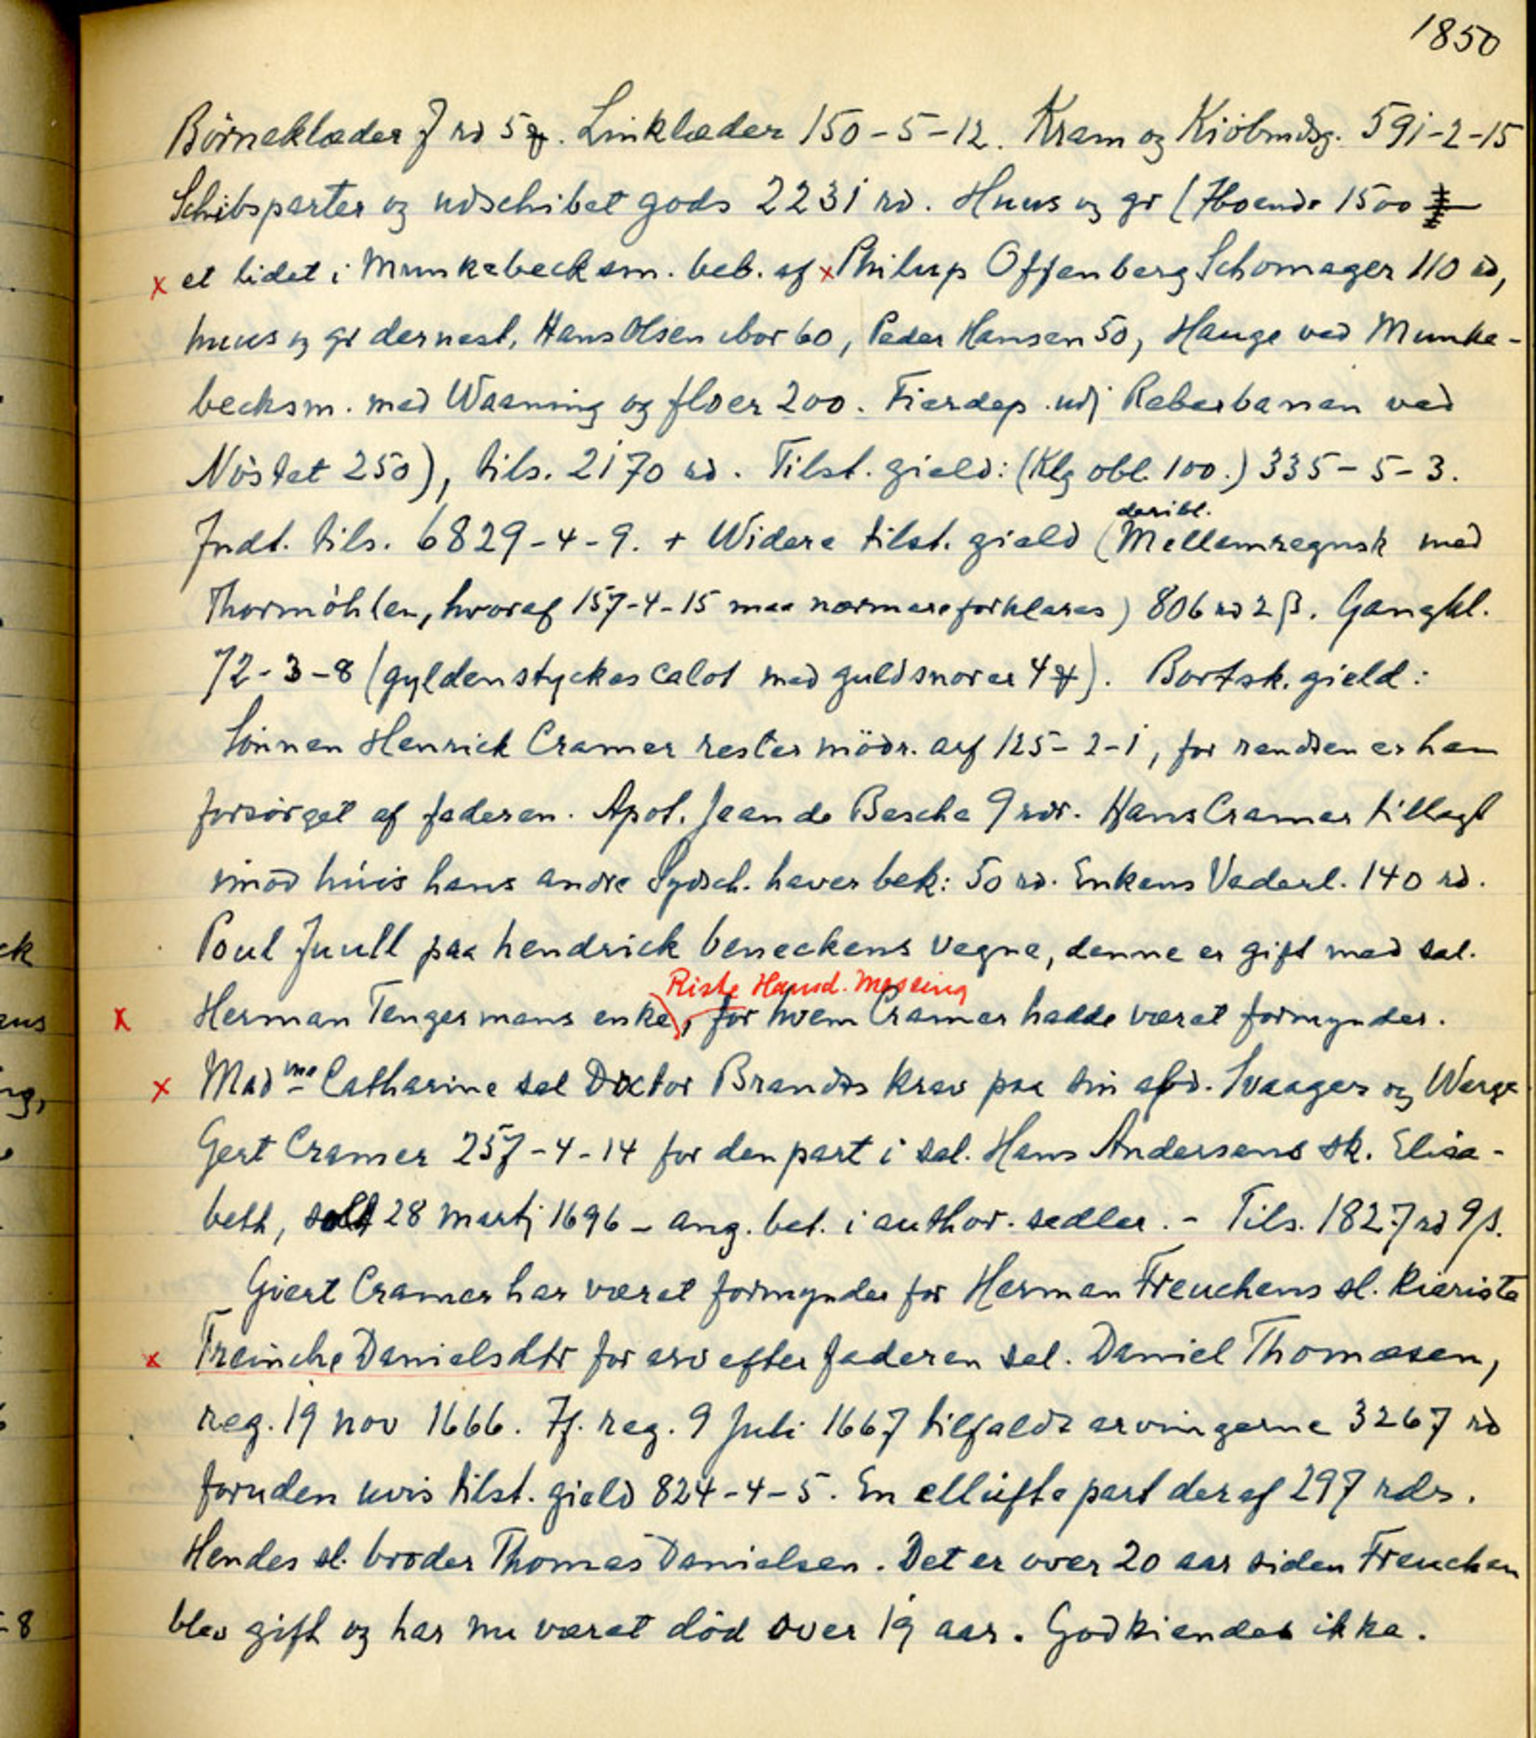 1850
Börneklæder 7 rd 5 ꝸ. Linklæder 150-5-12. Kram og Kiöbmdsg. 591-2-15
Schibsparter og udschibet gods 2231 rd. Huus og gr (Iboende 1500
x et lidet i Munkebecksm. beb. af x Philup Offenberg Schomager 110 rd,
huus og gr dernest, Hans Olsen ibor 60, Peder Hansen 50, Hauge ved Munke-
becksm. med Waaning og floer 200. Fierdep. udj Reberbanen ved
Nöstet 250), tils. 2170 rd. Tilst. gield: (Klg obl. 100.) 335-5-3.
Indt. tils. 6829-4-9. + Widere tilst. gield (
deribl.
Mellemregnsk med
Thormöhlen, hvoraf 157-4-15 maa nærmere forklares) 806 rd 2 β. Gangkl.
72-3-8 (gyldenstyckes calot med guldsnorer 4 ꝸ). Bortsk. gield:
Sönnen Henrick Cramer rester mödr. arf 125-2-1, for rendten er han
forsörget af faderen. Apot. Jean de Besche 9 rdr. Hans Cramer tillagt
imod huis hans andre Sydsch. haver bek: 50 rd. Enkens Vederl. 140 rd.
Poul Juull paa hendrick beneckens vegne, denne er gift med sal.
Riste Hansd. Messing
x Herman Tengermans enke), for hvem Cramer hadde været formynder.
x Madme Catharine sal Doctor Brandts krav paa sin afd. Svaager og Werge
Gert Cramer 257-4-14 for den part i sal. Hans Andersens sk. Elisa-
beth, solt 28 martj 1696 - ang. bet. i author. sedler. - Tils. 1827 rd 9 β.
Giert Cramer har været formynder for Herman Freuchens sl. kieriste
x Treinche Danielsdtr for arv efter faderen sal. Daniel Thomæsen,
reg. 19 nov 1666. Ff. reg. 9 Juli 1667 tilfaldt arvingerne 3267 rd
foruden uvis tilst. gield 824-4-5. En ellufte part deraf 297 rdr.
Hendes sl. broder Thomas Danielsen. Det er over 20 aar siden Freuchen
blev gift og har nu været död over 19 aar. Godkiendes ikke.